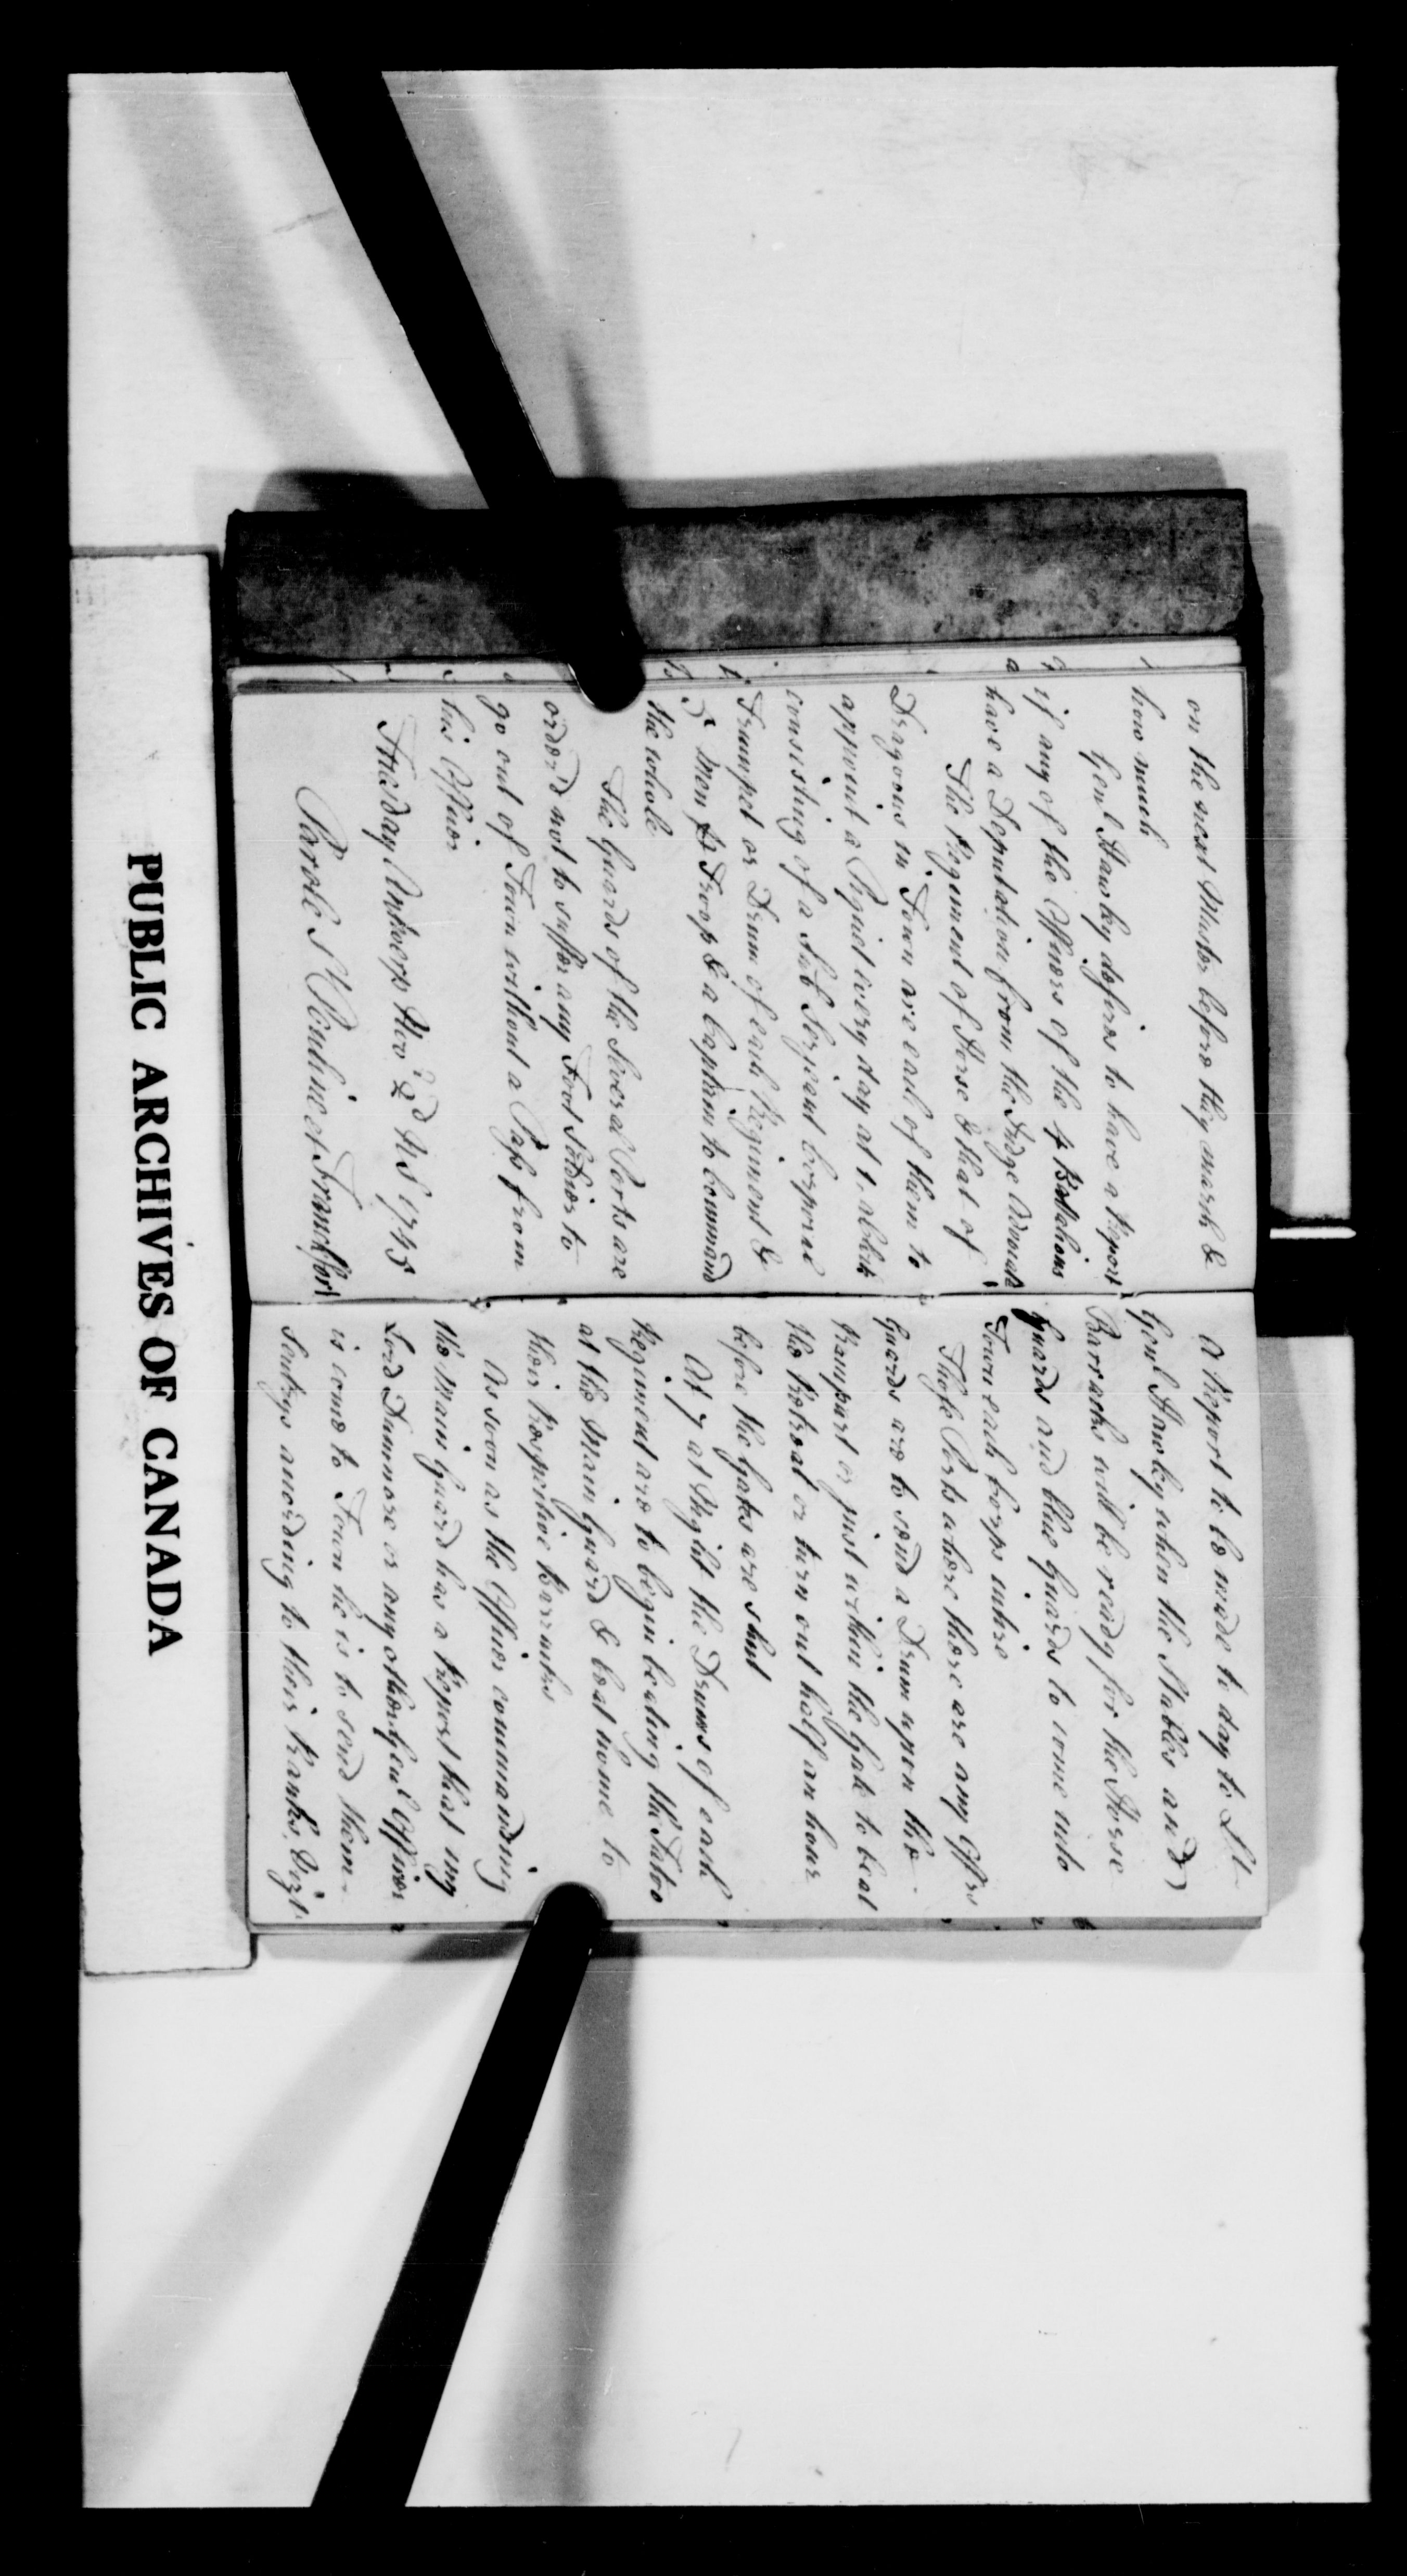 on the next Muster before they march &
how much
Genl Hawley desires to have a Report
if any of the Officers of the 7 Battalions
have a Deputation from the Judge Advocate
The Regiment of Horse & that of
Dragoons in Town are each of them to
appoint a Piquet every day at 1. aClock
consisting of a Sub Serjeant Corporal
Trumpet or Drum of each Regiment &
5 Men p Troop & a Captain to command
the whole
The Guards of the several Ports are
orderd not to suffer any Foot Soldier to
go out of Town without a Pass from
his Officer
Tuesday Antwerp 22d NS 1743
Parole St et Franckfort
A Report to be made to day to Lt
Genl Hawley when the Stables and
Barracks will be ready for the Horse
Guards and blue Guards to come into
Town each Corps intire
Those Ports where there are any Offrs
Guards are to send a Drum upon the
Rampart or just within the Gate to beat
the Retreat or turn out half an hour
before the Gates are shut
At 7 at Night the Drums of each
Regiment are to begin beating the Tatoo
at the Main Guard & beat home to
their Respective Barracks
As soon as the Officer commanding
the Main Guard has a Report that my
Lord Dunmore or any other Genl Officer
is come to Town he is to send them
Sentrys according to their Ranks, Vizt
PUBLIC ARCHIVES OF CANADA